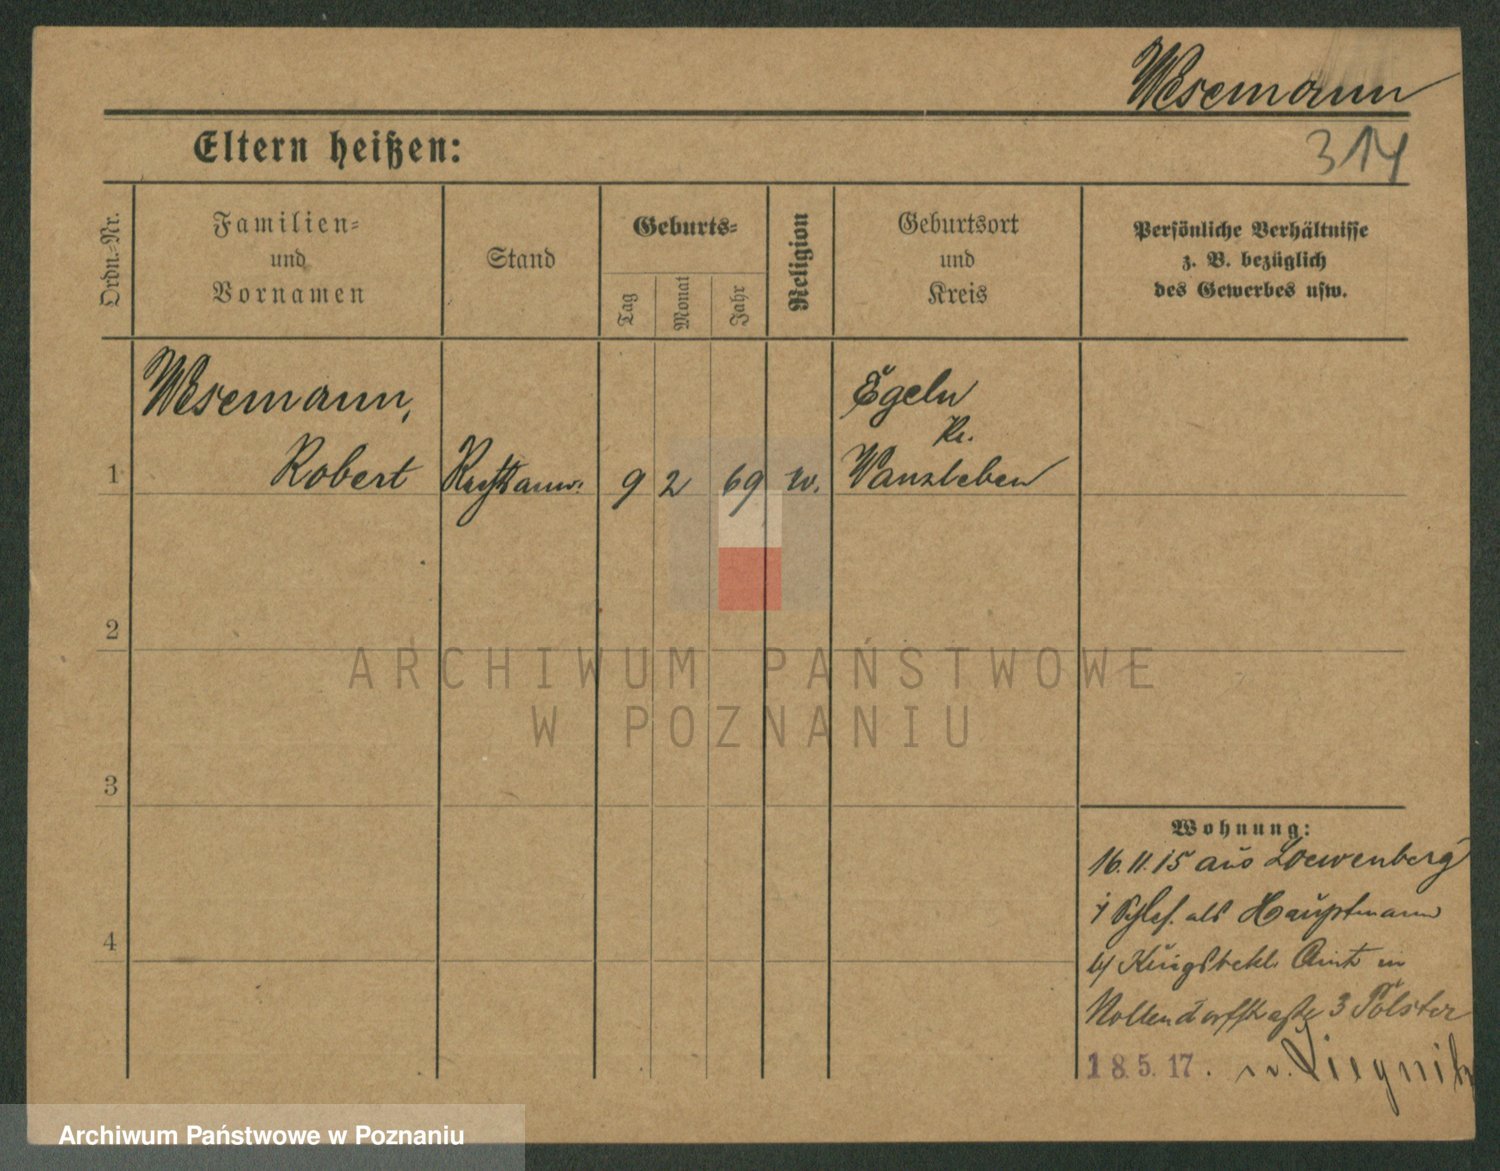 Wesemann
314
Eltern heißen:
Ordn.-Nr.
Familien-
und
Vornamen
Stand
Geburts-
Tag
Monat
Jahr
Religion
Geburtsort
und
Kreis
Persönliche Verhältnisse
z. B. bezüglich
des Gewerbes usw.
Wesemann,
Robert
1
9 2 69
Egeln
Kr.
Wanzleben
2
3
4
Wohnung:
16.11.15 aus Loewenberg
i Schles. als Hauptmann
Amt in
Nollendorfstraße 3
18.5.17. n. Liegnitz
ARCHIWUM PAŃSTWOWE
W POZNANIU
Archiwum Państwowe w Poznaniu